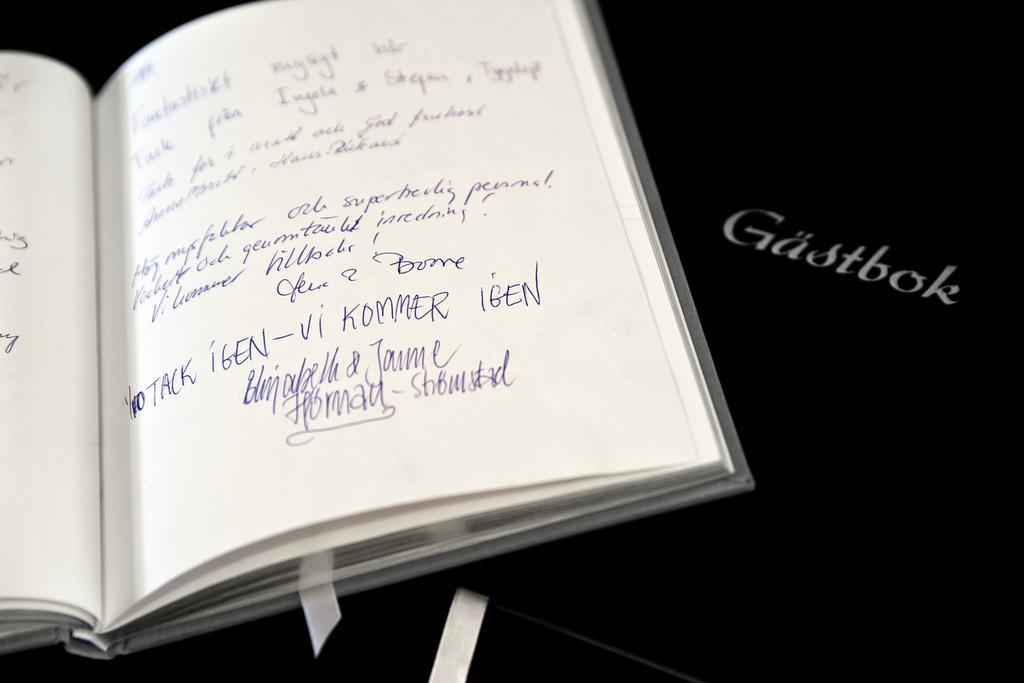 Fantastiskt mysigt här.
Tack från Ingela & Stefan,
Tack för i natt och god frukost
Hög mysfaktor och supertrevlig personal.
Vackert och genomtänkt inredning!
Vi kommer tillbaka!
TACK IGEN – VI KOMMER IGEN
Elisabeth & Janne
- Strömstad
Gästbok